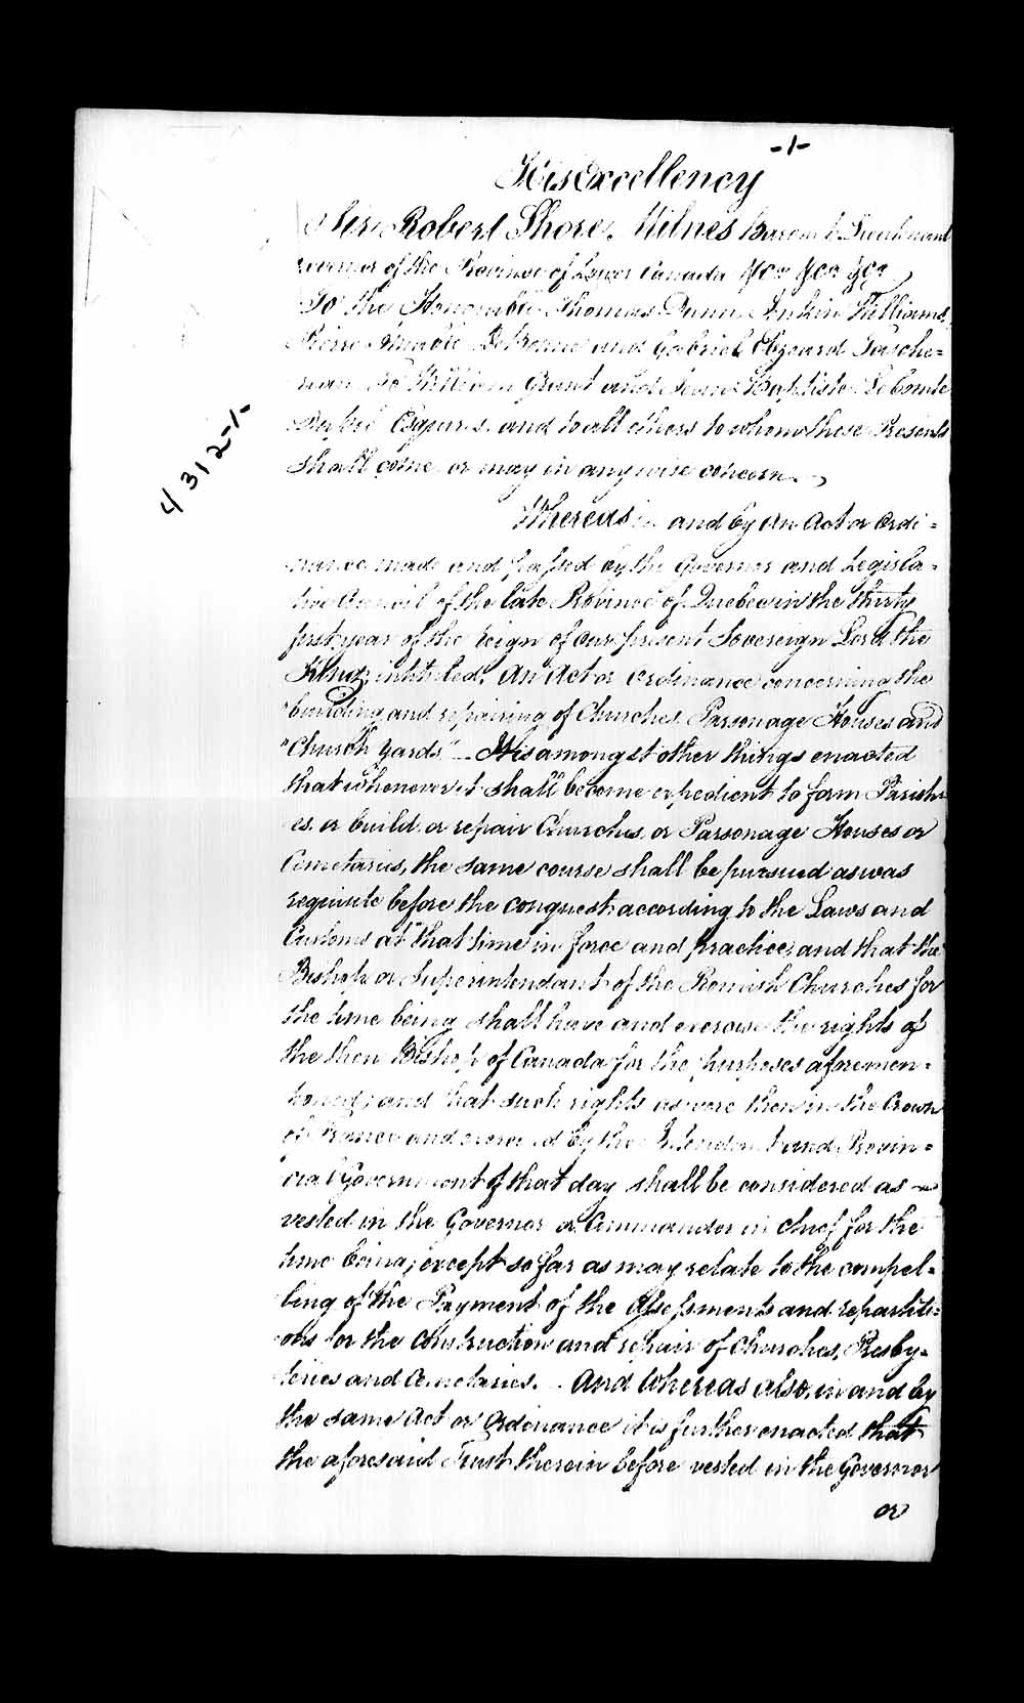 -1-
His Excellency
Sir Robert Shore Milnes Baronet Lieutenant
vernor of the Province of Lower Canada &ca &ca &ca
To the Honourable Thomas Dunn Jenkin Williams,
Pierre Amable Debonne and Gabriel Elzeard Tasche=
reau, To William Grant and Jean Baptiste Le Comte
Dupré Esquires, and to all others to whom these Presents
shall come or may in any wise concern.
4312-1-
Whereas in and by An Act or Ordi=
nance made and passed by the Governor and Legisla=
tive Council of the late Province of Quebec in the thirty
first year of the reign of our present Sovereign Lord the
King intituled, "An Act or Ordinance concerning the
"building and repairing of Churches Parsonage Houses and
"Church Yards" It is amongst other things enacted
that whenever it shall become expedient to form Parish=
es, or build or repair Churches, or Parsonage Houses or
Cemetaries, the same course shall be pursued as was
requisite before the Conquest according to the Laws and
Customs at that time in force and practice, and that the
Bishop or Superintendant of the Romish Churches for
the time being shall have and exercise the rights of
the then Bishop of Canada for the purposes aforemen=
tioned; and that such rights as were then in the Crown
of France and exercised by the Intendant and Provin=
cial Government of that day shall be considered as
vested in the Governor or Commander in chief for the
time being, except so far as may relate to the compel=
ling of the Payment of the Assessments and repartiti=
ons for the Construction and repair of Churches, Presby=
teries and Cemetaries. And Whereas also, in and by
the same Act or Ordinance it is further enacted that
the aforesaid Trust therein before vested in the Governor
or